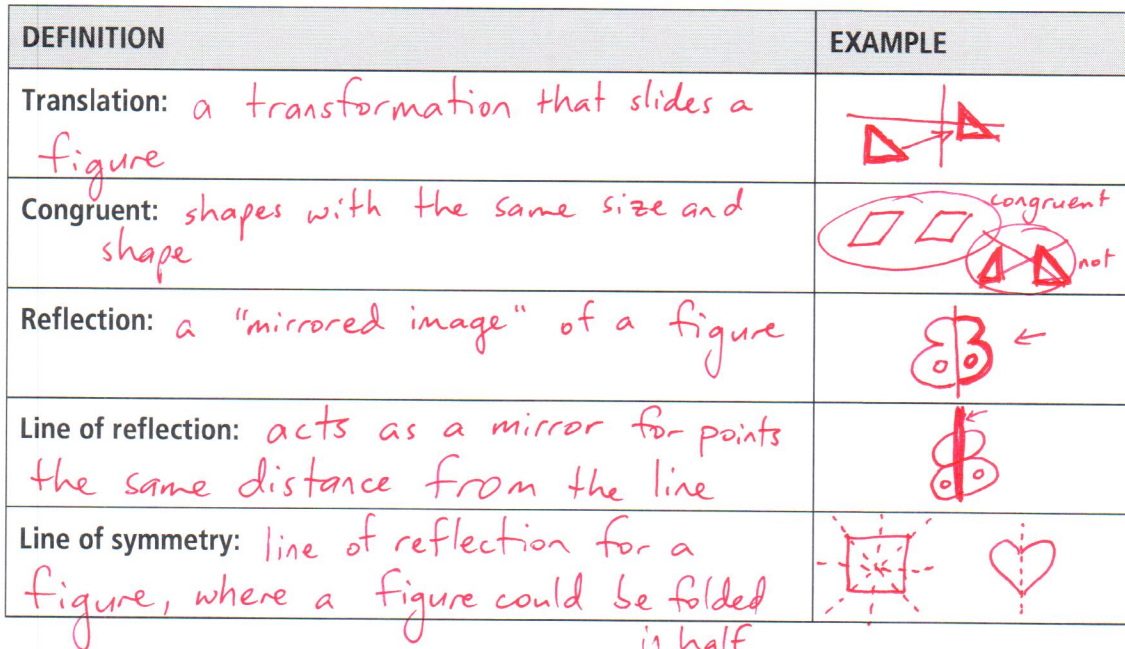 DEFINITION EXAMPLE
Translation: a transformation that slides a
figure
Congruent: shapes with the same size and
shape
congruent
not
Reflection: a "mirrored image" of a figure
Line of reflection: acts as a mirror for points
the same distance from the line
Line of symmetry: line of reflection for a
figure, where a figure could be folded
in half